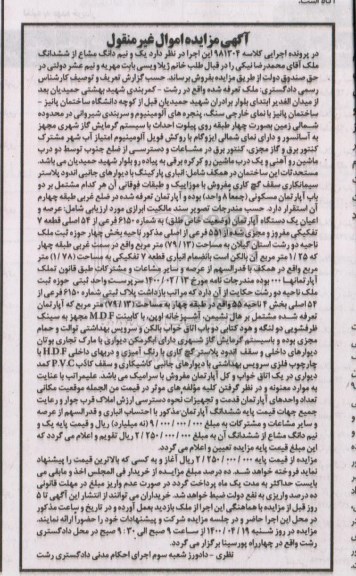 آگهی مزایده اموال غیر منقول
در پرونده اجرایی کلاسه ۹۸۱۲۰۴ این اجرا در نظر دارد یک و نیم دانگ مشاع از ششدانگ
ملک آقای محمدرضا نیکی را در قبال طلب خانم ژیلا ویسی بابت مهریه و نیم عشر دولتی در
حق صندوق دولت از طریق مزایده بفروش برساند. حسب گزارش تعریف و توصیف کارشناس
رسمی دادگستری: ملک تعرفه شده واقع در رشت - کمربندی شهید بهشتی حمیدیان بعد
از میدان الغدیر ابتدای بلوار برادران شهید حمیدیان قبل از کوچه دانشگاه ساختمان پانیز -
ساختمان پانیز با نمای خارجی سنگ، پنجره های آلومینیوم و سربندی شیروانی در محدوده
شمالی زمین بصورت چهار طبقه روی پیلوت احداث با سیستم گرمایش گاز شهری مجهز
به آسانسور و دارای نمای شمالی ایزوگام با روکش فویل آلومینیوم امتیاز آب شهر مشترک
کنتور برق و گاز مجزی، کنتور برق در مشاعات و دسترسی از ضلع جنوب توسط دو درب
ماشین رو آهنی و یک درب ماشین رو کرکره برقی به پیاده رو بلوار شهید حمیدیان می باشد.
مستحدثات این ساختمان در همکف شامل: انباری پارکینگ با دیوارهای جانبی اندود پلاستر
سیمانکاری سقف گچ کاری مفروش با موزاییک و طبقات فوقانی آن هر کدام مشتمل بر دو
باب آپارتمان مسکونی (جمعا ۸ واحد) بوده و آپارتمان تعرفه شده در ضلع غربی طبقه چهارم
آن استقرار دارد. حسب مندرجات تصویر سند مالکیت ابرازی مورد ارزیابی شامل: عرصه و
اعیان یک دستگاه آپارتمان به شماره ۶۱۵۰ فرعی از ۵۴ اصلی قطعه ۷
تفکیکی مفروز و مجزی شده از ۵۵۱ فرعی از اصلی مذکور ناحیه بخش چهار حوزه ثبت ملک
ناحیه دو رشت استان گیلان به مساحت (۷۹/۱۳) متر مربع واقع در سمت غربی طبقه چهار
که ۱/۲۵ متر مربع آن بالکن است بانضمام انباری قطعه ۷ تفکیکی به مساحت (۱/۷۸) متر
مربع واقع در همکف با قدرالسهم از عرصه و سایر مشاعات و مشترکات طبق قانون تملک
آپارتمانها ۱۰۰ بوده مندرجات نامه مورخ سرپرست واحد ثبتی حوزه ثبت
ملک ناحیه دو رشت حکایت از آن دارد که مراتب بازداشت پلاک ثبتی شماره ۶۱۵۰ فرعی از
۵۴ اصلی بخش ۴ ناحیه واقع در طبقه چهار به مساحت (۷۹/۱۳) متر مربع که آپارتمان
تعرفه شده مشتمل بر هال نشیمن، آشپزخانه اوپن، با کابینت M.D.F مجهز به سینک
ظرفشویی دو لگنه و هود کتابی دو باب اتاق خواب بالکن و سرویس بهداشتی توالت و حمام
مجزی بوده و باسیستم گرمایش گاز شهری دارای آبگرمکن دیواری با مارک تجاری بوتان
دیوارهای داخلی و سقف اندود پلاستر گچ کاری با رنگ آمیزی و دربهای داخلی H.D.F با
چارچوب فلزی سرویس بهداشتی با دیوارهای جانبی کاشیکاری و سقف کاذب P.V.C کمد
دیواری در یک اتاق خواب و کل آپارتمان مفروش با سرامیک می باشد. علیهذا با عنایت
به موارد معنونه و در نظر گرفتن کلیه مؤلفه های موثر در قیمت من الجمله موقعیت مکانی
تعداد واحدهای آپارتمان قدمت و تجهیزات نحوه دسترسی ارزش املاک قرب جوار و رعایت
جمیع جهات قیمت پایه ششدانگ آپارتمان مذکور با احتساب انباری و قدرالسهم از عرصه
و سایر مشاعات و مشترکات به مبلغ ۹/۰۰۰/۰۰۰/۰۰۰ (نه میلیارد) ریال و قیمت پایه یک و
نیم دانگ مشاع از ششدانگ آن به مبلغ ۲/۲۵۰/۰۰۰/۰۰۰ ریال تقویم و اعلام می گردد که
این مبلغ قیمت پایه مزایده تعیین و اعلام می گردد.
مزایده از قیمت پایه ۲/۲۵۰/۰۰۰/۰۰۰ ریال آغاز و به کسی که بالاترین قیمت را پیشنهاد
نماید فروخته خواهد شد. ده درصد مبلغ مزایده از خریدار فی المجلس اخذ و مابقی می
بایست حداکثر به مدت یک ماه پرداخت گردد در صورت عدم واریز مبلغ در مهلت قانونی
ده درصد واریزی به نفع دولت ضبط خواهد شد. خریداران می توانند از انتشار این آگهی تا ۵
روز قبل از مزایده با هماهنگی این اجرا از ملک بازدید بعمل آورده و در تاریخ و ساعت مذکور
در محل این اجرا حاضر و در جلسه مزایده شرکت و پیشنهادات خود را حضورا ارائه نمایند.
مزایده در روز شنبه ۱۴۰۰/۰۴/۱۹ از ساعت ۹ صبح الی ۹:۳۰ صبح در محل دادگستری
رشت واقع در چهارراه پورسینا برگزار می گردد.
نظری - دادورز شعبه سوم اجرای احکام مدنی دادگستری رشت